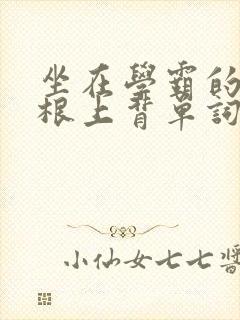 坐在學霸的
根上背單詞
小仙女七七醬